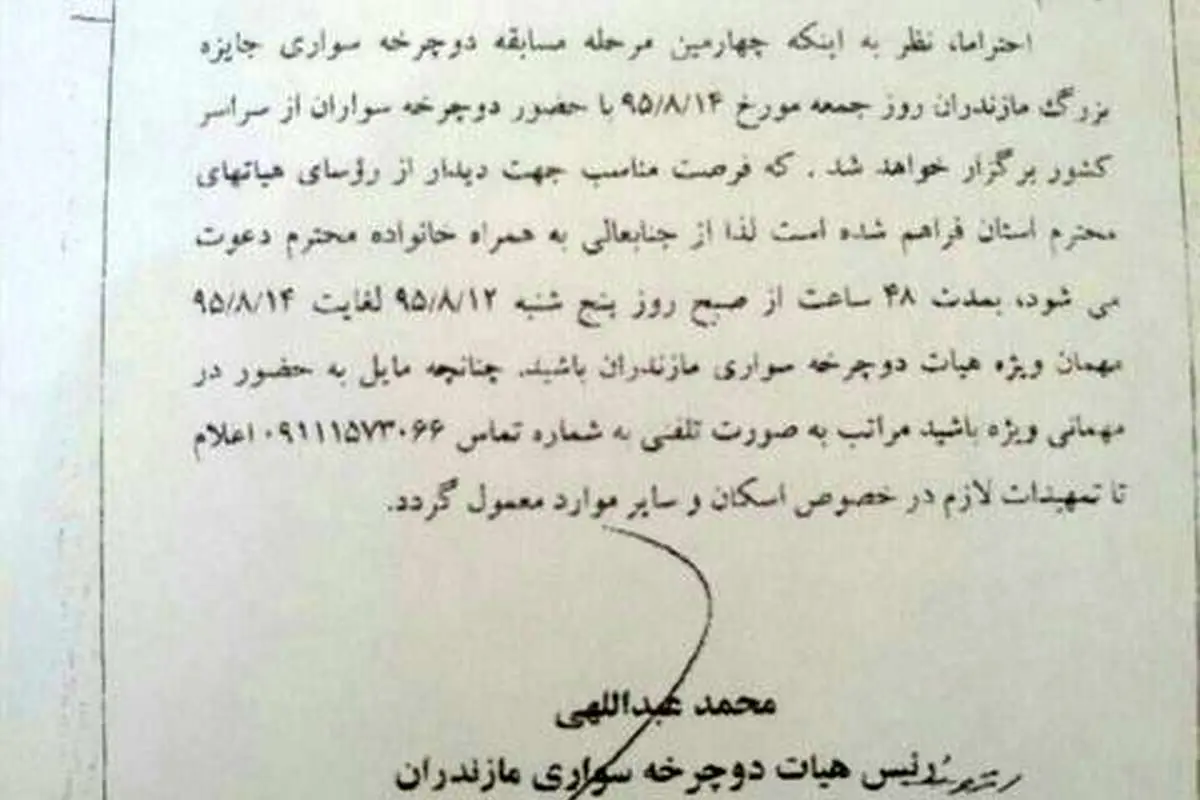 احتراما، نظر به اینکه چهارمین مرحله مسابقه دوچرخه سواری جایزه
بزرگ مازندران روز جمعه مورخ ۹۵/۸/۱۴ با حضور دوچرخه سواران از سراسر
کشور برگزار خواهد شد . که فرصت مناسب جهت دیدار از رؤسای هیاتهای
محترم استان فراهم شده است لذا از جنابعالی به همراه خانواده محترم دعوت
می شود، بمدت ۴۸ ساعت از صبح روز پنج شنبه ۹۵/۸/۱۲ لغایت ۹۵/۸/۱۴
مهمان ویژه هیات دوچرخه سواری مازندران باشید. چنانچه مایل به حضور در
مهمانی ویژه باشید مراتب به صورت تلفنی به شماره تماس ۰۹۱۱۱۵۷۳۰۶۶ اعلام
تا تمهیدات لازم در خصوص اسکان و سایر موارد معمول گردد.
محمد عبداللهی
رئیس هیات دوچرخه سواری مازندران